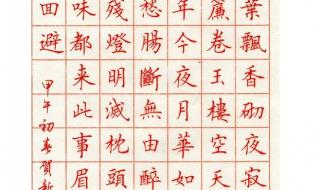 葉飄香砌夜寂
簾卷玉樓空天
年今夜月華如
愁腸斷無由醉
殘燈明滅枕頭
味都來此事眉
面避
甲午初春賀新